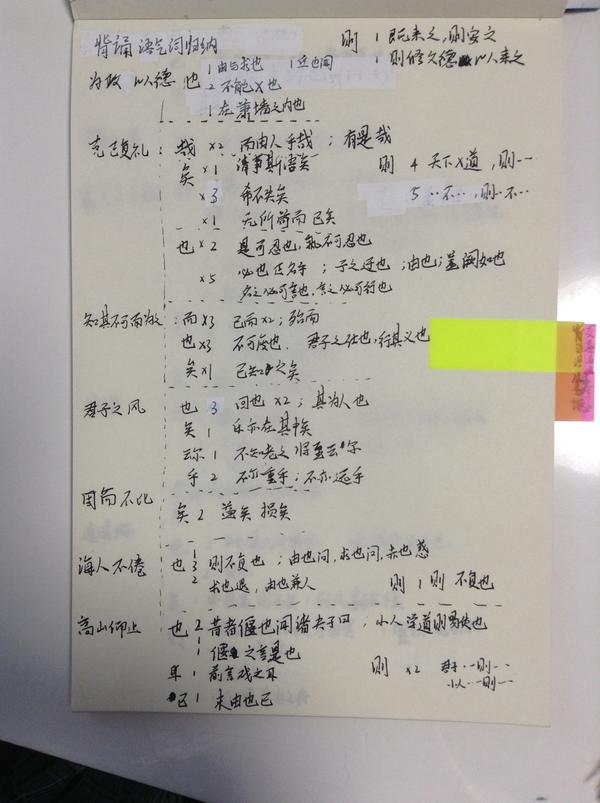 背诵 语气词归纳 则 1 既来之,则安之
1 则修文德 以来之
为政以德 也 1 由与求也 1 丘也闻
2 不能X也
1 在萧墙之内也
克己复礼: 哉 ×2 而由人乎哉;有是哉
矣 ×1 请事斯语矣 则 4 天下X道,则…
×3 希不失矣 5 …不…,则…不…
×1 无所苟而已矣
也 ×2 是可忍也,孰不可忍也
×5 必也正名乎;子之迂也;由也;盖阙如也
名之必可言也,言之必可行也
知其不可而为之:而×3 已而×2;殆而
也×3 不可废也. 君子之仕也,行其义也
矣×1 已知之矣
君子之风 也 3 回也×2;其为人也
矣 1 乐亦在其中矣
云尔 1 不知老之将至云尔
乎 2 不亦重乎;不亦远乎
周而不比 矣 2 益矣 损矣
诲人不倦 也 1 则不复也;由也问,求也问,赤也惑
3
2 求也退,由也兼人 则 1 则不复也
高山仰止 也 2 昔者偃也闻诸夫子曰;小人学道则易使也
1 偃之言是也
耳 1 前言戏之耳 则 ×2 君子…则…
小人…则…
已 1 末由也已